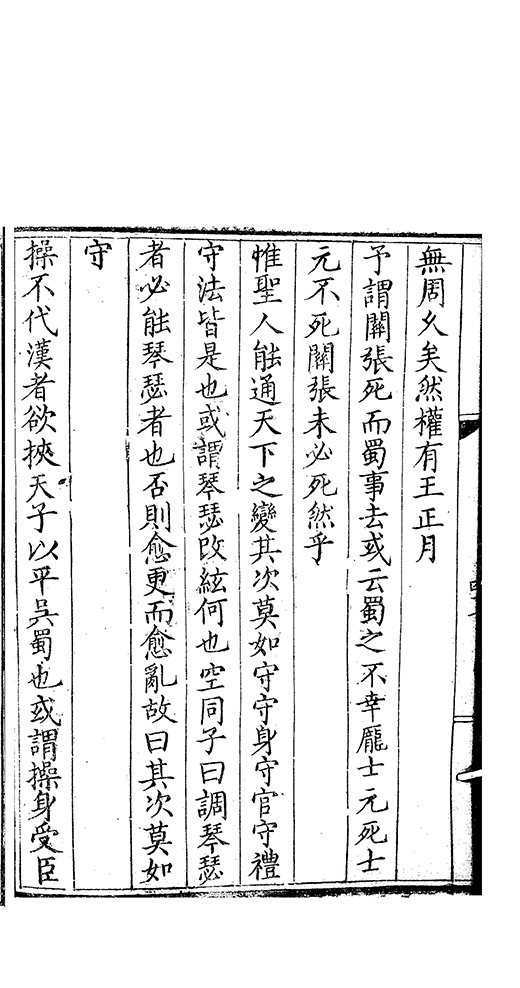 無周久矣然權有王正月
予謂關張死而蜀事去或云蜀之不幸龐士元死士
元不死關張未必死然乎
惟聖人能通天下之變其次莫如守守身守官守禮
守法皆是也或謂琴瑟改絃何也空同子曰調琴瑟
者必能琴瑟者也否則愈更而愈亂故曰其次莫如
守
操不代漢者欲挾天子以平吳蜀也或謂操身受臣